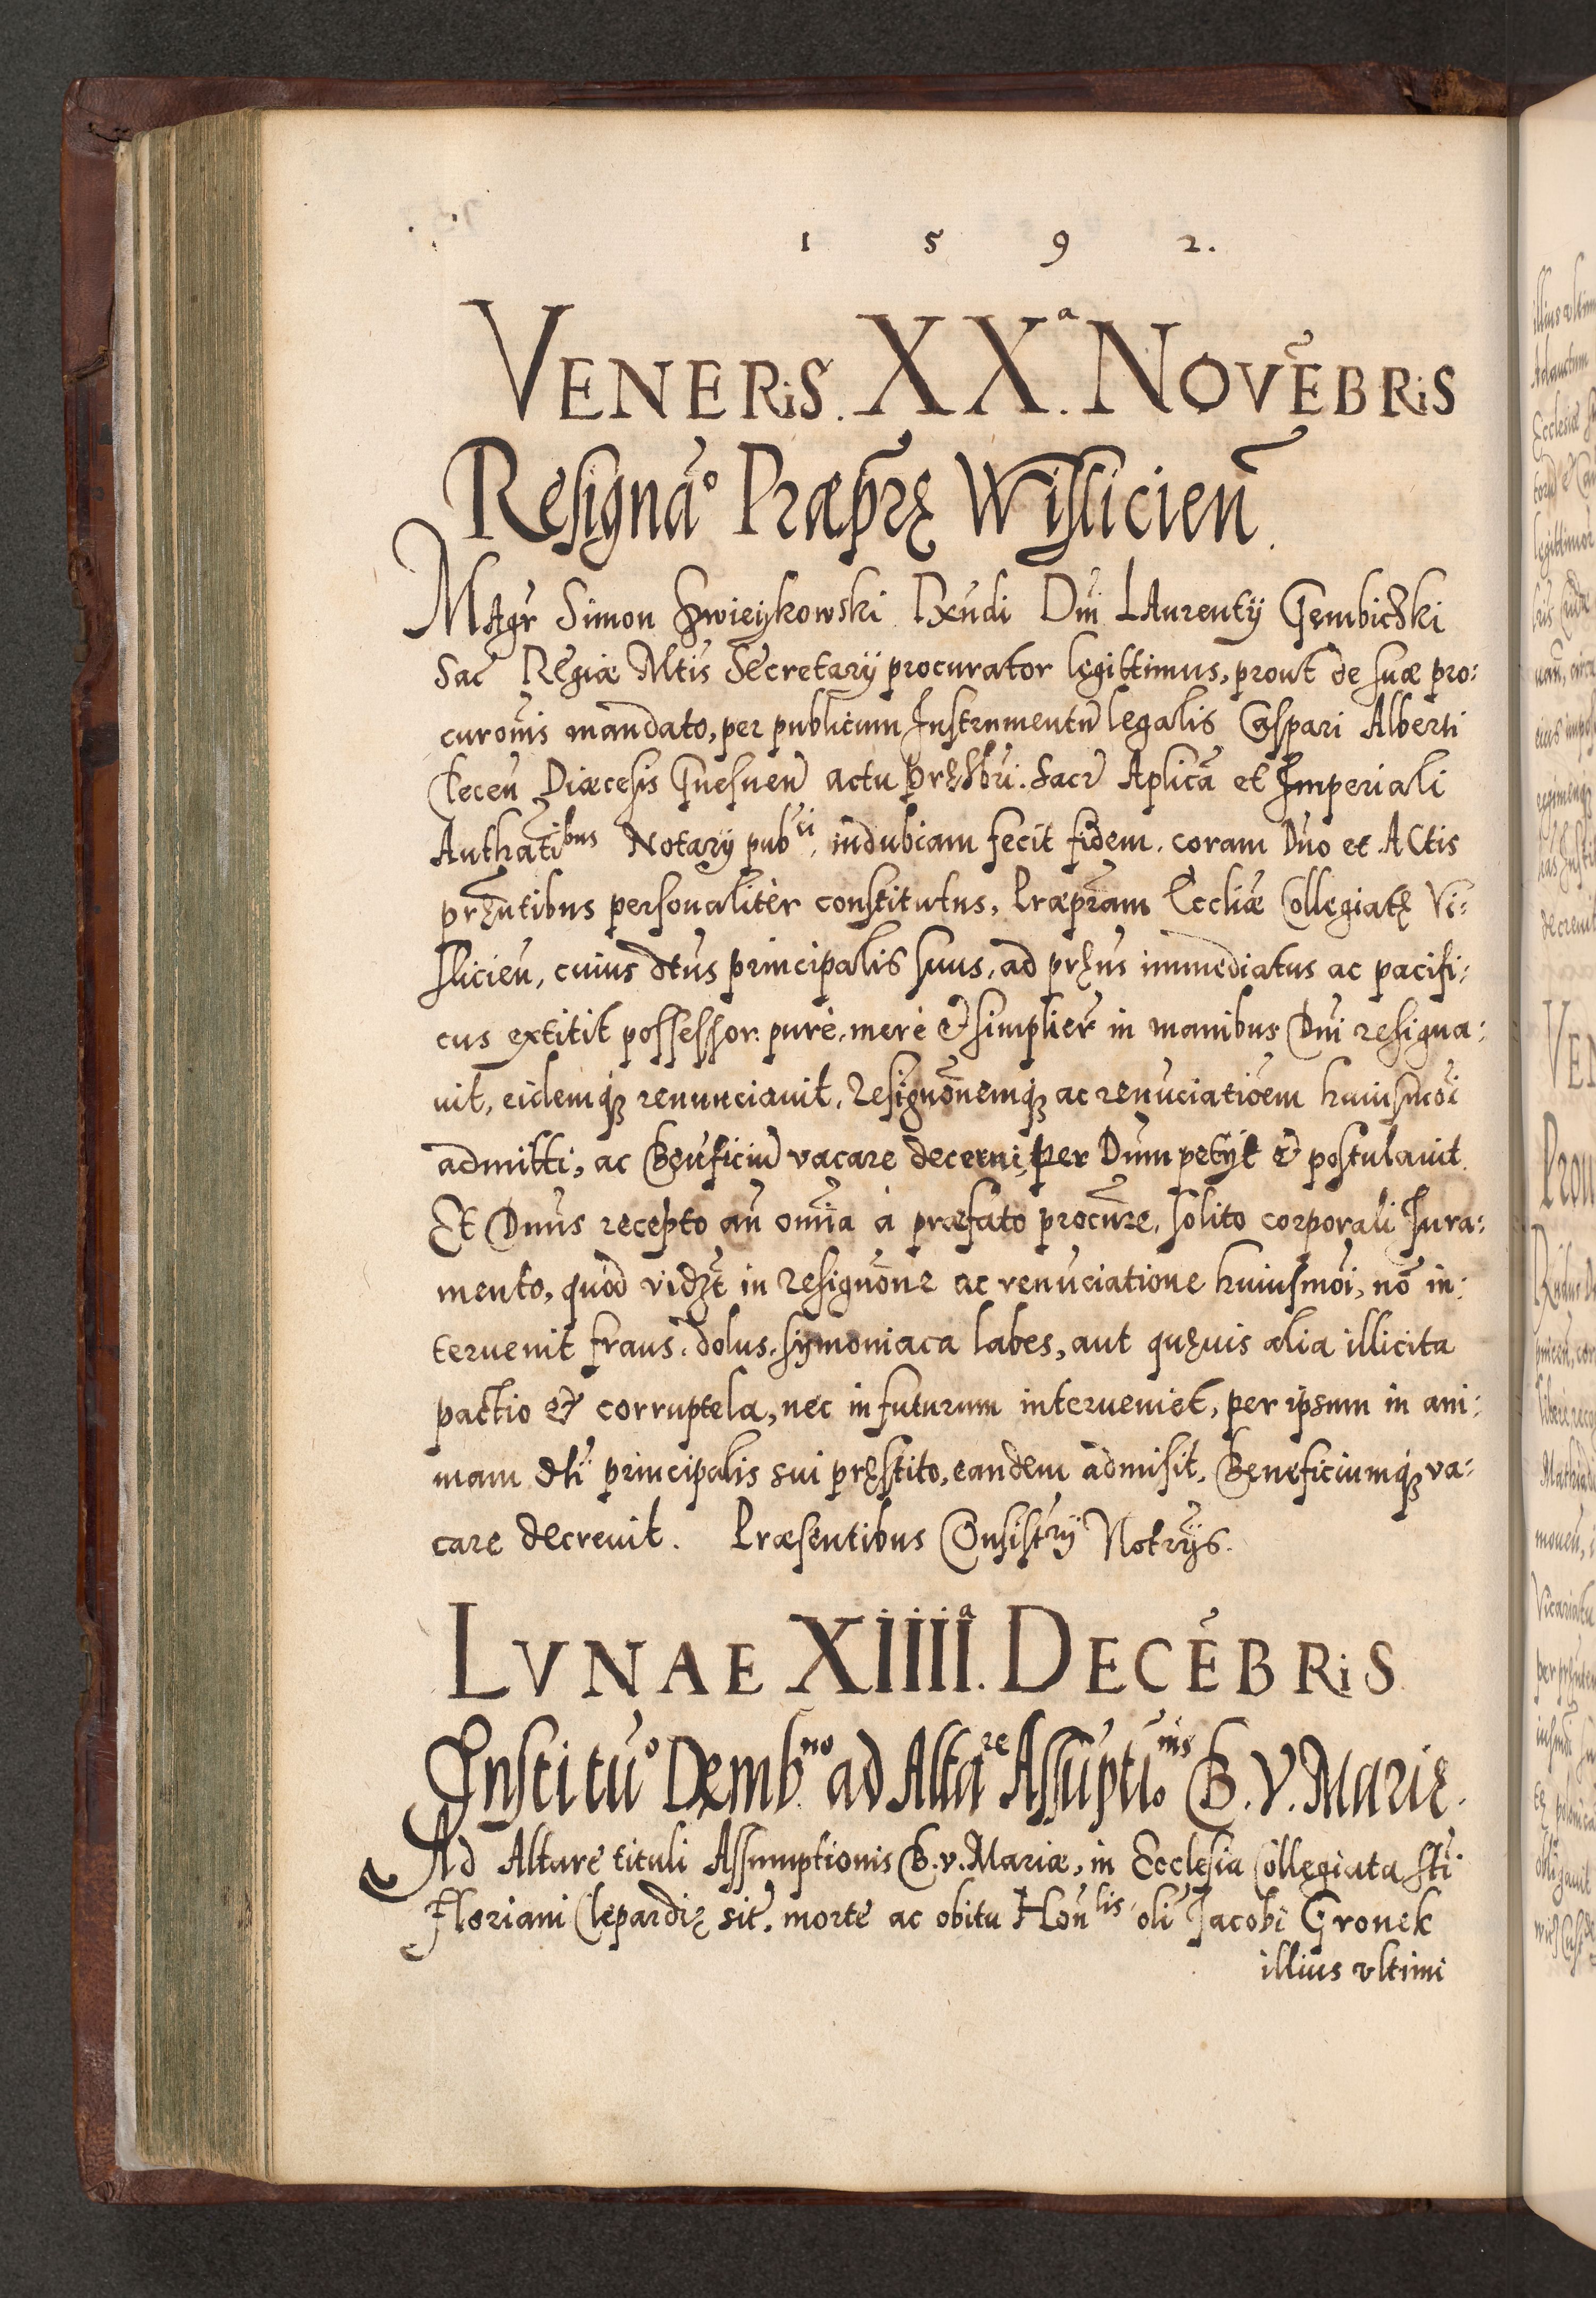 1 5 9 2.
VENERiS. XX.ª NOVĒBRiS
Resignãº Præp̃rę Wisliciẽn.
MAgr̃ Simon Zwieykowski Rx̃ndi Dñi LAurentÿ Gembiczki
Sac̃ REgiæ Mtĩs SEcretarÿ procurator legittimus, prout de suæ pro:
curoñis mandato, per publicum Instrumentũ legalis Caspari Alberti
Clecen̄ Diæcesis Gnesnen̄ actu Pręsbrĩ. Sacr̃ Aplicã et Imperiali
Authatĩbus Notarÿ pubci, indubiam fecit fidem. coram Dño et ACtis
pręñtibus personalitèr constitutus, Præpr̃am Eccliæ̃ Collegiatę Vi:
slicień, cuius dt̃us principalis suus, ad pręñs immediatus ac pacifi:
cus extitit possessor: purè, merè & simplicr̃ in manibus Dñi resigna:
uit, eidemq́ʒ renunciauit, Resignõnemq́ʒ ac renũciatiõem huiusmõi
admitti, ac Bęnẽficiũ vacare decerni, per Dñum petÿt & postulauit.
Et Dñus recepto añ omñia à præfato procur̃e, solito corporali Iura:
mento, quòd vidȝt̃ in resignõne ac renũciatione huiusmõi, nõ in:
teruenit fraus, dolus, sÿmoniaca labes, aut quęuis alia illicita
pactio & corruptela, nec in futurum interueniet, per ipsum in ani:
mam dt̃i principalis sui pręstito, eandem admisit, Beneficiumq́ʒ va:
care decreuit. Præsentibus Consistrÿ Notrÿs.
LVNAE XIIII.ª DECĒBRiS
Institũº Demb.no ad Altare Assũptionis B. V. Marię.
Ad Altare tituli Assumptionis B. v. Mariæ, in Ecclesia Collegiata Stĩ
Floriani Clepardię sit̃. morte ac obitu Hoñlis oli͂ Jacobi Gronek
illius vltimi